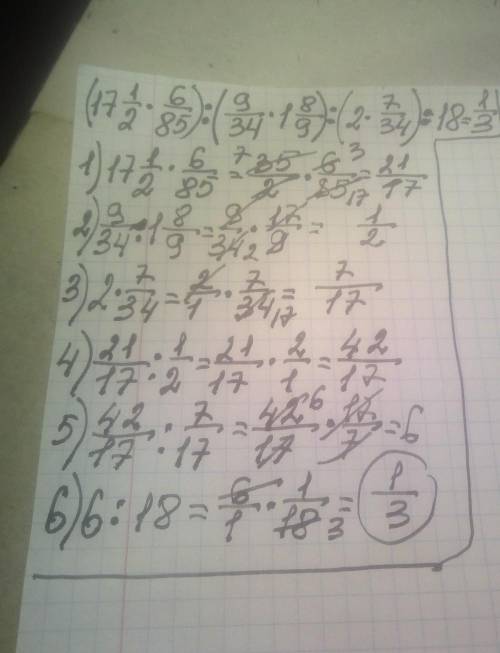 (17 1/2 · 6/85) : (9/34 · 1 8/9) : (2 · 7/34) : 18 = 1/3
1) 17 1/2 · 6/85 = 7 35/2 · 6 3/85 17 = 21/17
2) 9/34 · 1 8/9 = 9/34 2 · 17/9 = 1/2
3) 2 · 7/34 = 2/1 · 7/34 17 = 7/17
4) 21/17 : 1/2 = 21/17 · 2/1 = 42/17
5) 42/17 : 7/17 = 42 6/17 · 17/7 = 6
6) 6 : 18 = 6/1 · 1/18 3 = 1/3